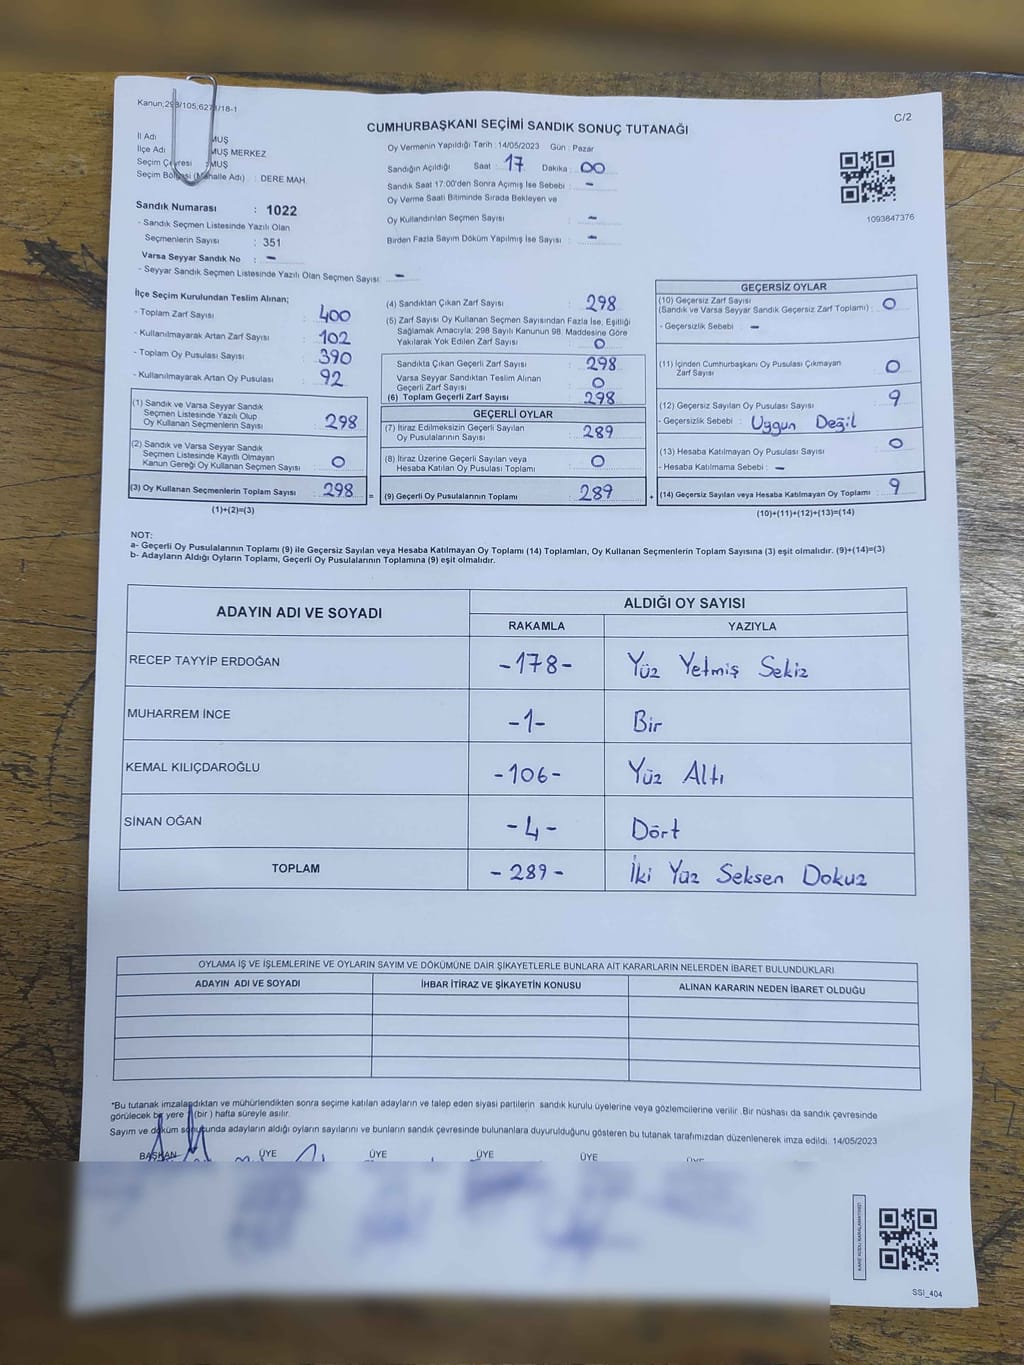 Kanun,298/105,627/18-1
C/2
CUMHURBAŞKANI SEÇİMİ SANDIK SONUÇ TUTANAĞI
İl Adı MUŞ
İlçe Adı MUŞ MERKEZ
Seçim Çevresi : MUŞ
Seçim Bölgesi (Mahalle Adı) : DERE MAH.
Sandık Numarası : 1022
- Sandık Seçmen Listesinde Yazılı Olan
Seçmenlerin Sayısı : 351
Varsa Seyyar Sandık No : -
- Seyyar Sandık Seçmen Listesinde Yazılı Olan Seçmen Sayısı: -
Oy Vermenin Yapıldığı Tarih : 14/05/2023 Gün : Pazar
Sandığın Açıldığı Saat : 17 Dakika : 00
Sandık Saat 17:00'den Sonra Açımış İse Sebebi : -
Oy Verme Saati Bitiminde Sırada Bekleyen ve
Oy Kullandırılan Seçmen Sayısı : -
Birden Fazla Sayım Döküm Yapılmış İse Sayısı : -
1093847376
İlçe Seçim Kurulundan Teslim Alınan;
- Toplam Zarf Sayısı : 400
- Kullanılmayarak Artan Zarf Sayısı : 102
- Toplam Oy Pusulası Sayısı : 390
- Kullanılmayarak Artan Oy Pusulası : 92
(1) Sandık ve Varsa Seyyar Sandık
Seçmen Listesinde Yazılı Olup
Oy Kullanan Seçmenlerin Sayısı : 298
(2) Sandık ve Varsa Seyyar Sandık
Seçmen Listesinde Kayıtlı Olmayan
Kanun Gereği Oy Kullanan Seçmen Sayısı : 0
(3) Oy Kullanan Seçmenlerin Toplam Sayısı : 298 =
(1)+(2)=(3)
(4) Sandıktan Çıkan Zarf Sayısı : 298
(5) Zarf Sayısı Oy Kullanan Seçmen Sayısından Fazla İse, Eşitliği
Sağlamak Amacıyla; 298 Sayılı Kanunun 98. Maddesine Göre
Yakılarak Yok Edilen Zarf Sayısı : 0
Sandıkta Çıkan Geçerli Zarf Sayısı : 298
Varsa Seyyar Sandıktan Teslim Alınan
Geçerli Zarf Sayısı : 0
(6) Toplam Geçerli Zarf Sayısı : 298
GEÇERLİ OYLAR
(7) İtiraz Edilmeksizin Geçerli Sayılan
Oy Pusulalarının Sayısı : 289
(8) İtiraz Üzerine Geçerli Sayılan veya
Hesaba Katılan Oy Pusulası Toplamı : 0
(9) Geçerli Oy Pusulalarının Toplamı : 289 +
GEÇERSİZ OYLAR
(10) Geçersiz Zarf Sayısı
(Sandık ve Varsa Seyyar Sandık Geçersiz Zarf Toplamı) : 0
- Geçersizlik Sebebi : -
(11) İçinden Cumhurbaşkanı Oy Pusulası Çıkmayan
Zarf Sayısı : 0
(12) Geçersiz Sayılan Oy Pusulası Sayısı : 9
- Geçersizlik Sebebi : Uygun Değil
(13) Hesaba Katılmayan Oy Pusulası Sayısı : 0
- Hesaba Katılmama Sebebi : -
(14) Geçersiz Sayılan veya Hesaba Katılmayan Oy Toplamı : 9
(10)+(11)+(12)+(13)=(14)
NOT:
a- Geçerli Oy Pusulalarının Toplamı (9) ile Geçersiz Sayılan veya Hesaba Katılmayan Oy Toplamı (14) Toplamları, Oy Kullanan Seçmenlerin Toplam Sayısına (3) eşit olmalıdır. (9)+(14)=(3)
b- Adayların Aldığı Oyların Toplamı, Geçerli Oy Pusulalarının Toplamına (9) eşit olmalıdır.
ADAYIN ADI VE SOYADI
ALDIĞI OY SAYISI
RAKAMLA YAZIYLA
RECEP TAYYİP ERDOĞAN -178- Yüz Yetmiş Sekiz
MUHARREM İNCE -1- Bir
KEMAL KILIÇDAROĞLU -106- Yüz Altı
SİNAN OĞAN -4- Dört
TOPLAM -289- İki Yüz Seksen Dokuz
OYLAMA İŞ VE İŞLEMLERİNE VE OYLARIN SAYIM VE DÖKÜMÜNE DAİR ŞİKAYETLERLE BUNLARA AİT KARARLARIN NELERDEN İBARET BULUNDUKLARI
ADAYIN ADI VE SOYADI İHBAR İTİRAZ VE ŞİKAYETİN KONUSU ALINAN KARARIN NEDEN İBARET OLDUĞU
*Bu tutanak imzalandıktan ve mühürlendikten sonra seçime katılan adayların ve talep eden siyasi partilerin sandık kurulu üyelerine veya gözlemcilerine verilir. Bir nüshası da sandık çevresinde
görülecek bir yere 1 (bir ) hafta süreyle asılır.
Sayım ve döküm sonucunda adayların aldığı oyların sayılarını ve bunların sandık çevresinde bulunanlara duyurulduğunu gösteren bu tutanak tarafımızdan düzenlenerek imza edildi. 14/05/2023
BAŞKAN ÜYE ÜYE ÜYE ÜYE ÜYE
KARE KODU KARALAMAYINIZ!
SSI_404